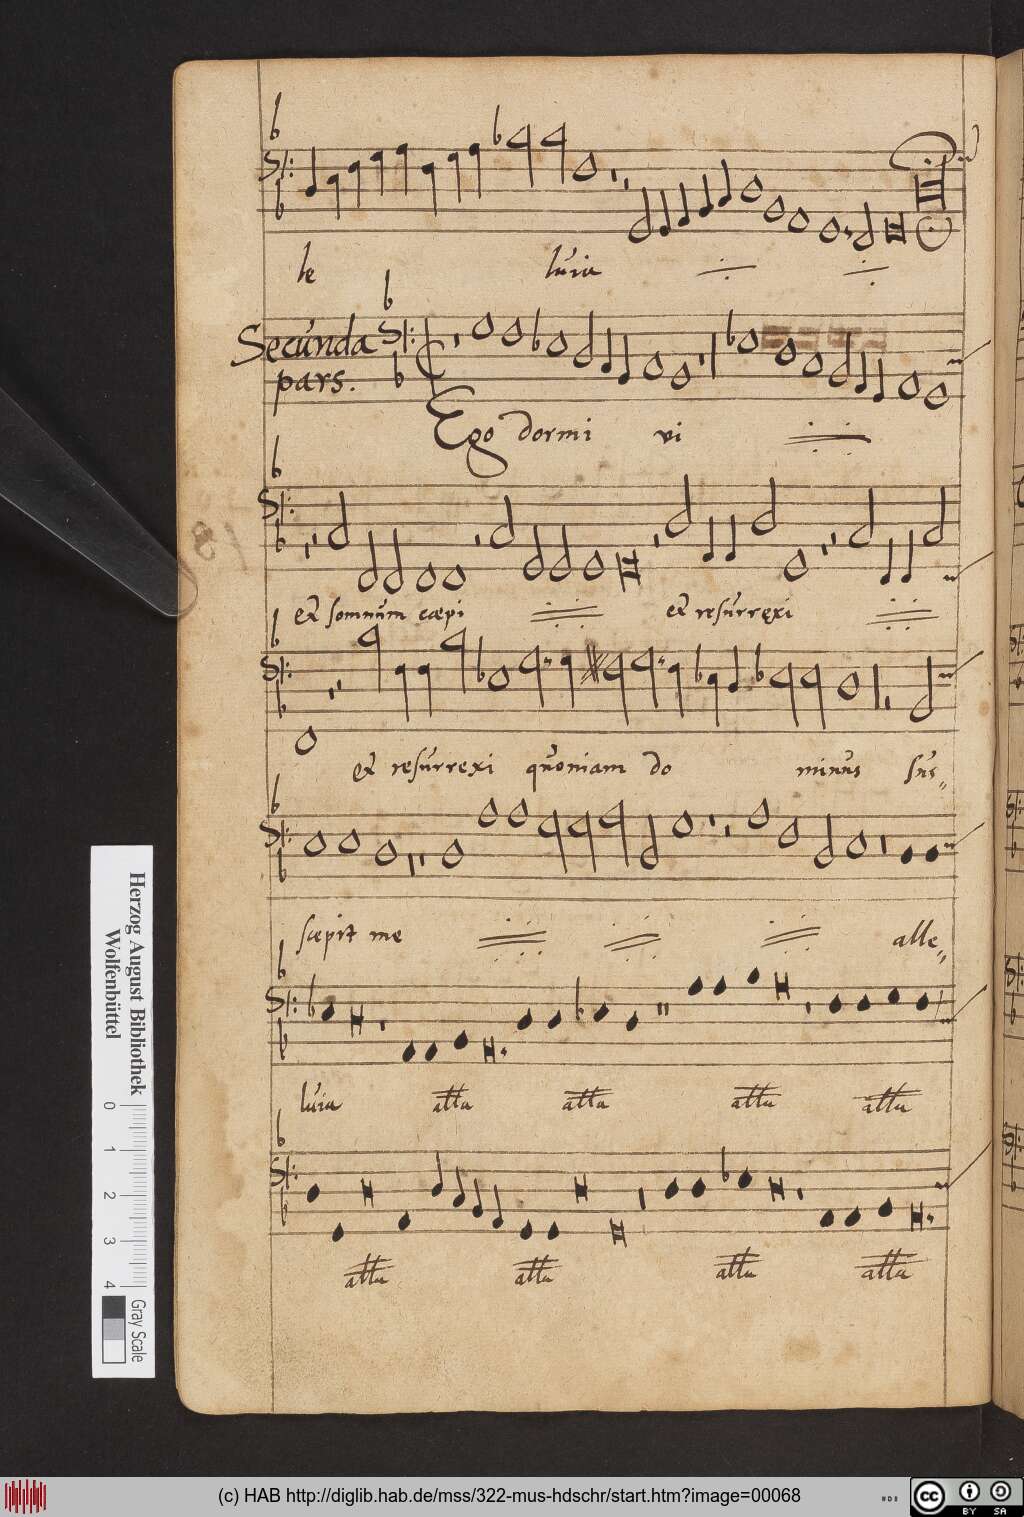 le luia
Secunda
pars.
Ego dormi vi
et somnum cæpi et resurrexi
et resurrexi quoniam do minus sus=
scepit me alle=
luia alla alla alla alla
alla alla alla alla
Herzog August Bibliothek
Wolfenbüttel
0 1 2 3 4 Gray Scale
(c) HAB http://diglib.hab.de/mss/322-mus-hdschr/start.htm?image=00068
cc BY SA